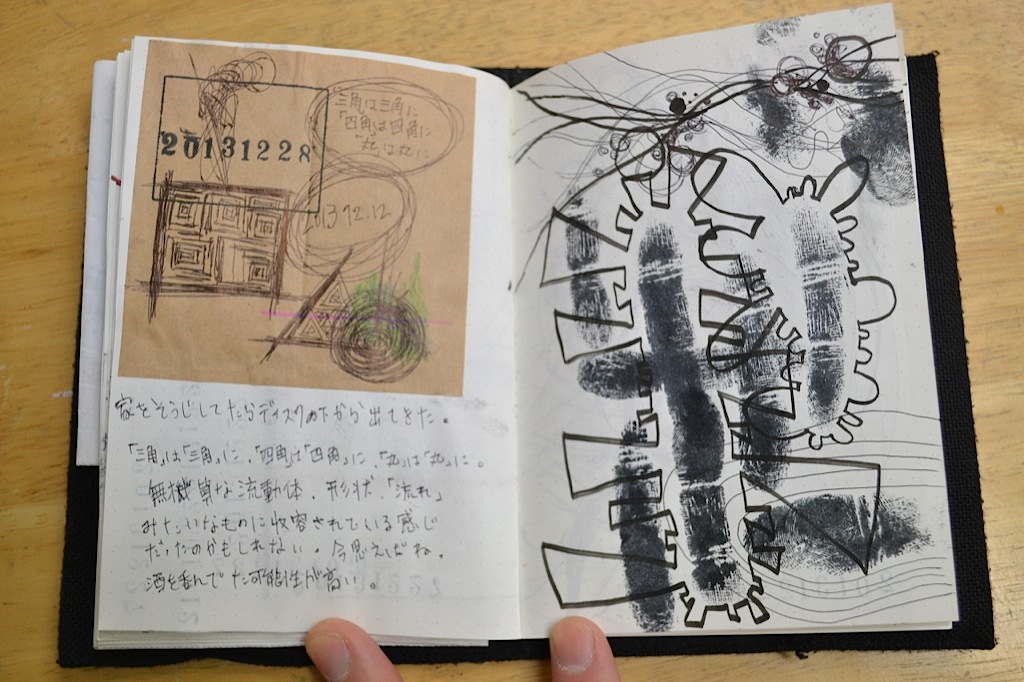 「三角」は三角に
「四角」は四角に
「丸」は丸に
20131228
2013 12.12
家をそうじしてたらディスクの下から出てきた。
「三角」は「三角」に、「四角」は「四角」に、「丸」は「丸」に。
無機質な流動体、形状、「流れ」
みたいなものに収容されている感じ
だったのかもしれない。今思えばね。
酒を呑んでた可能性が高い。